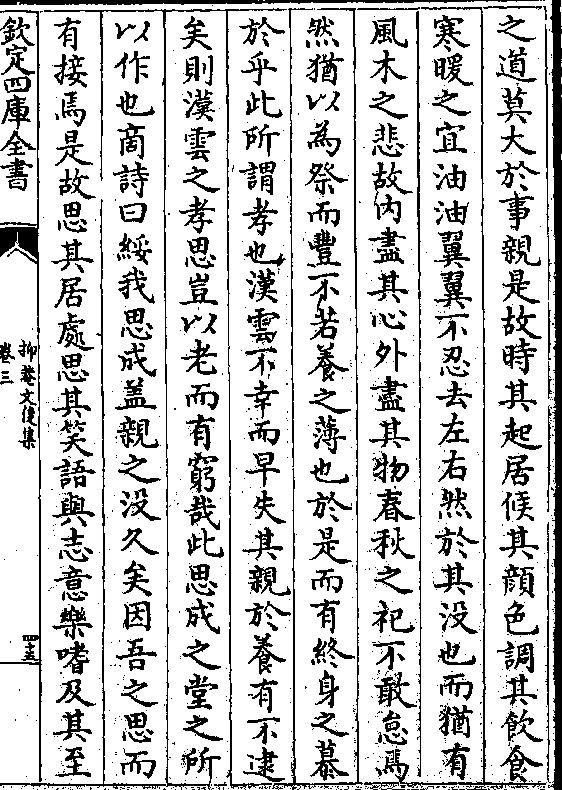 之道莫大於事親是故時其起居候其顔色調其飲食
寒暖之宜油油翼翼不忍去左右然於其没也而猶有
風木之悲故内盡其心外盡其物春秋之祀不敢怠焉
然猶以為祭而豐不若養之薄也於是而有終身之慕
於乎此所謂孝也漢雲不幸而早失其親於養有不逮
矣則漢雲之孝思豈以老而有窮哉此思成之堂之所
以作也商詩曰綏我思成盖親之没久矣因吾之思而
有接焉是故思其居處思其笑語與志意樂嗜及其至
欽定四庫全書
抑菴文後集
卷三
四十五